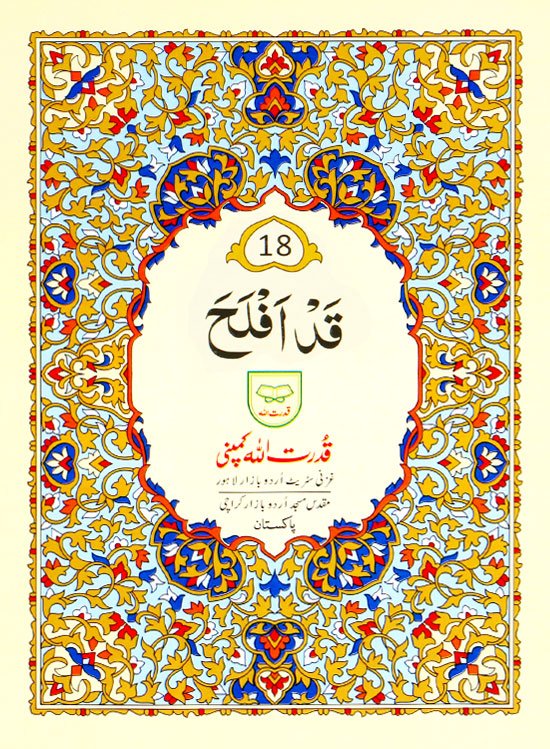 18
قَدْ اَفْلَحَ
قدرت اللہ
قُدرت اللہ کمپنی
غزنی سٹریٹ اُردو بازار لاہور
مقدس مسجد اُردو بازار کراچی
پاکستان